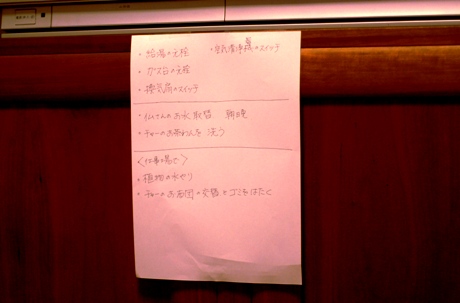 ・給湯の元栓 ・空気清浄機のスイッチ
・ガス台の元栓
・換気扇のスイッチ
・仏さんのお水取替 朝晩
・チャーのお茶わんを洗う
〈仕事場で〉
・植物の水やり
・チャーのお布団の交替とゴミをはたく